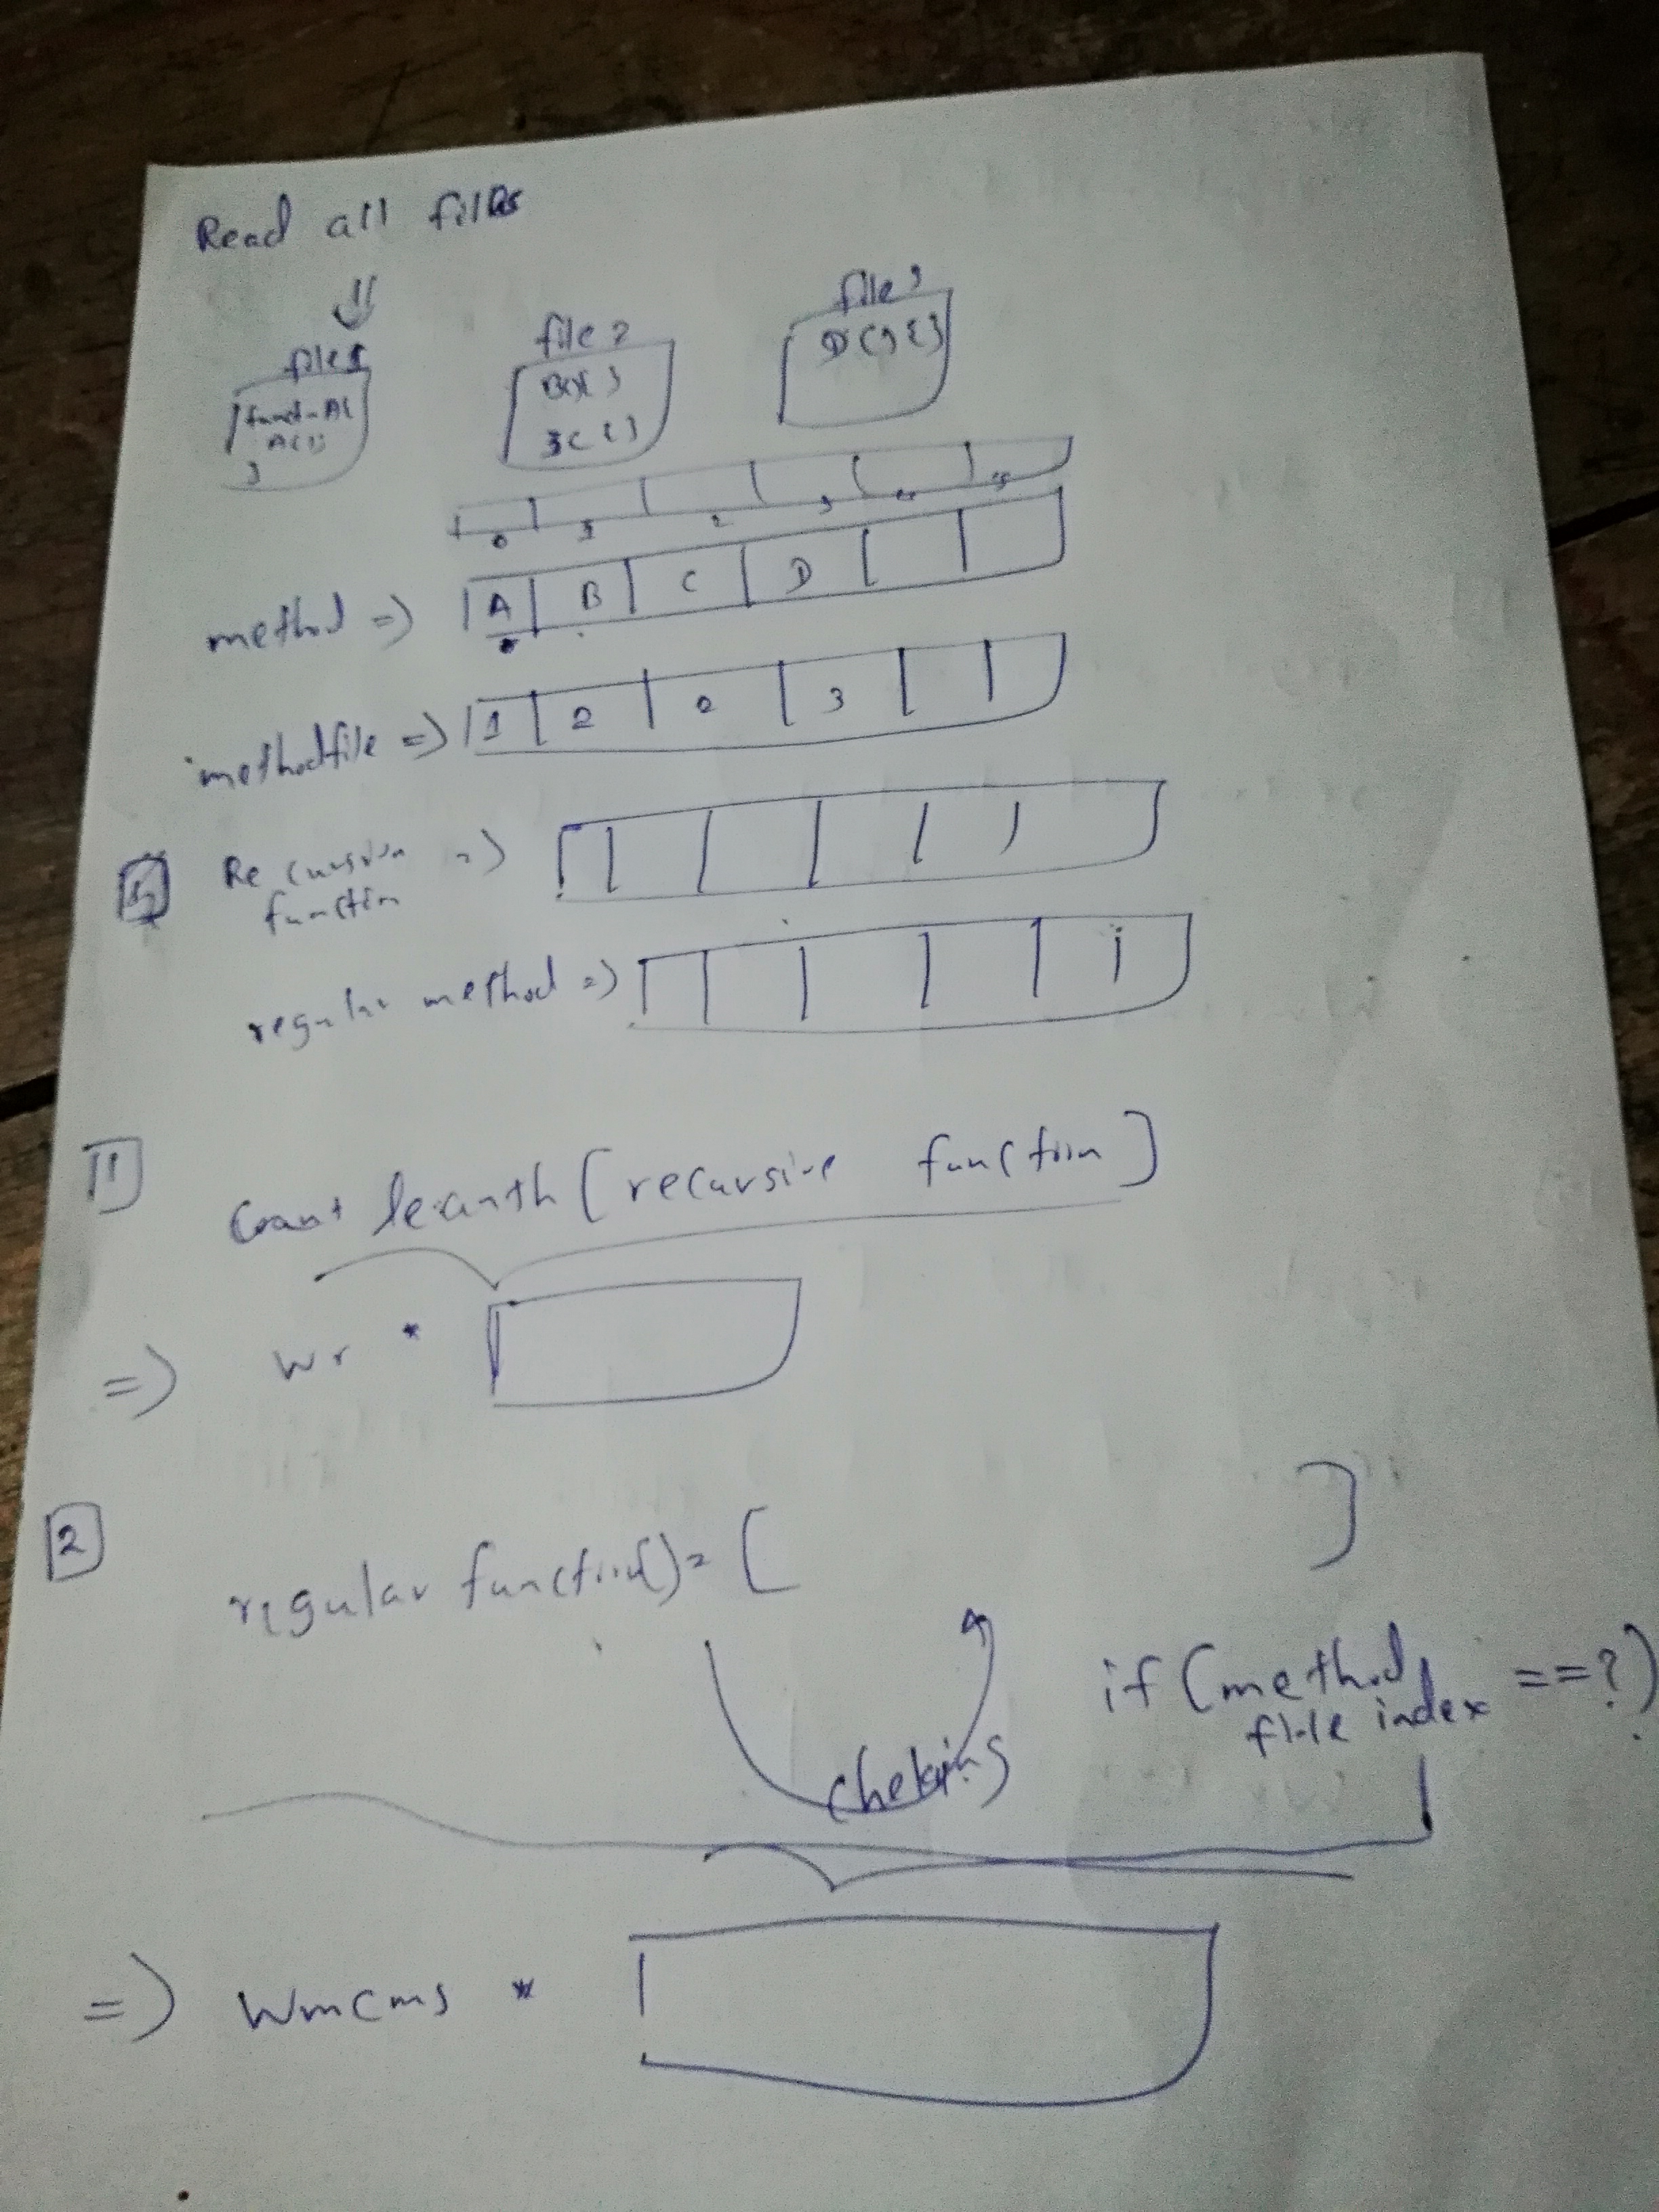 Read all files
file 1
file 2
file 3
A();
}
D(){}
0 1 2 3 4 5
method => A B C D
methodfile => 1 2 2 3
Recursion =>
function
regular method =>
1
Count [recursive function]
=> Wr *
2
regular function() = [ ]
if (method ==?)
file index
cheking
=> Wmcms *